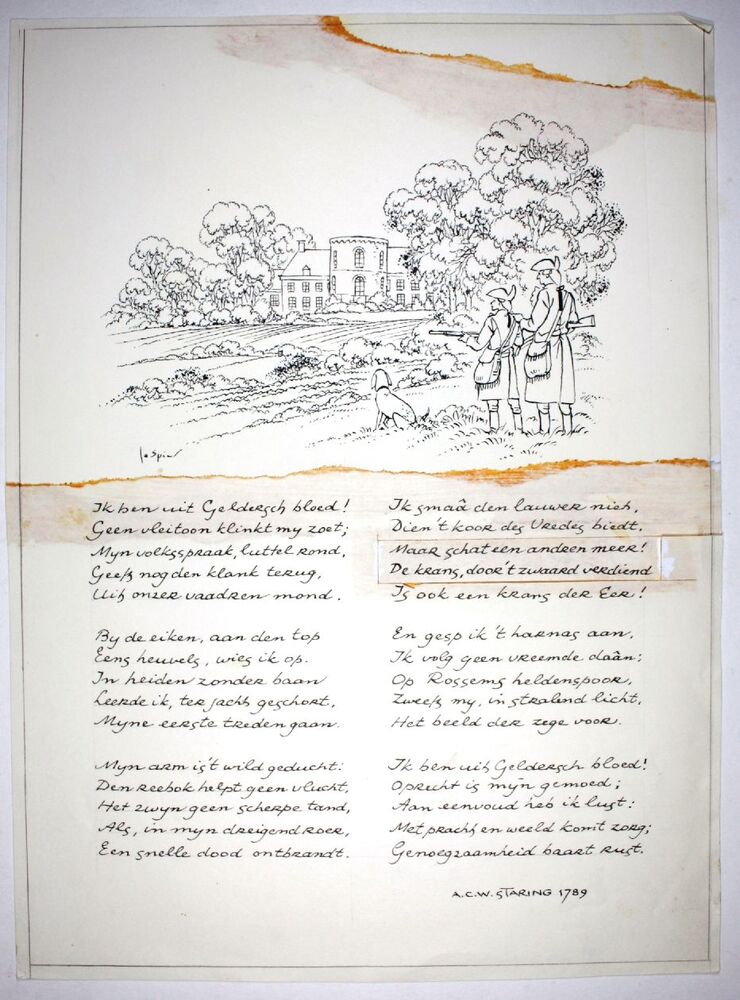 Jo Spier
Ik ben uit Geldersch bloed!
Geen vleitoon klinkt my zoet;
Myn volksspraak, luttel rond,
Geeft nog den klank terug,
Uit onzer vaadren mond.
By de eiken, aan den top
Eens heuvels, wies ik op.
In heiden zonder baan
Leerde ik, ter jacht geschort,
Myne eerste treden gaan.
Myn arm is 't wild geducht:
Den reebok helpt geen vlucht,
Het zwyn geen scherpe tand,
Als, in myn dreigend roer,
Een snelle dood ontbrandt.
Ik smaâ den lauwer niet,
Dien 't koor des Vredes biedt,
Maar schat een andren meer!
De krans, door 't zwaard verdiend
Is ook een krans der Eer!
En gesp ik 't harnas aan,
Ik volg geen vreemde daân;
Op Rossems heldenspoor,
Zweeft my, in stralend licht,
Het beeld der zege voor.
Ik ben uit Geldersch bloed!
Oprecht is mijn gemoed;
Aan eenvoud heb ik lust:
Met pracht en weeld komt zorg;
Genoegzaamheid baart rust.
A.C.W. STARING 1789